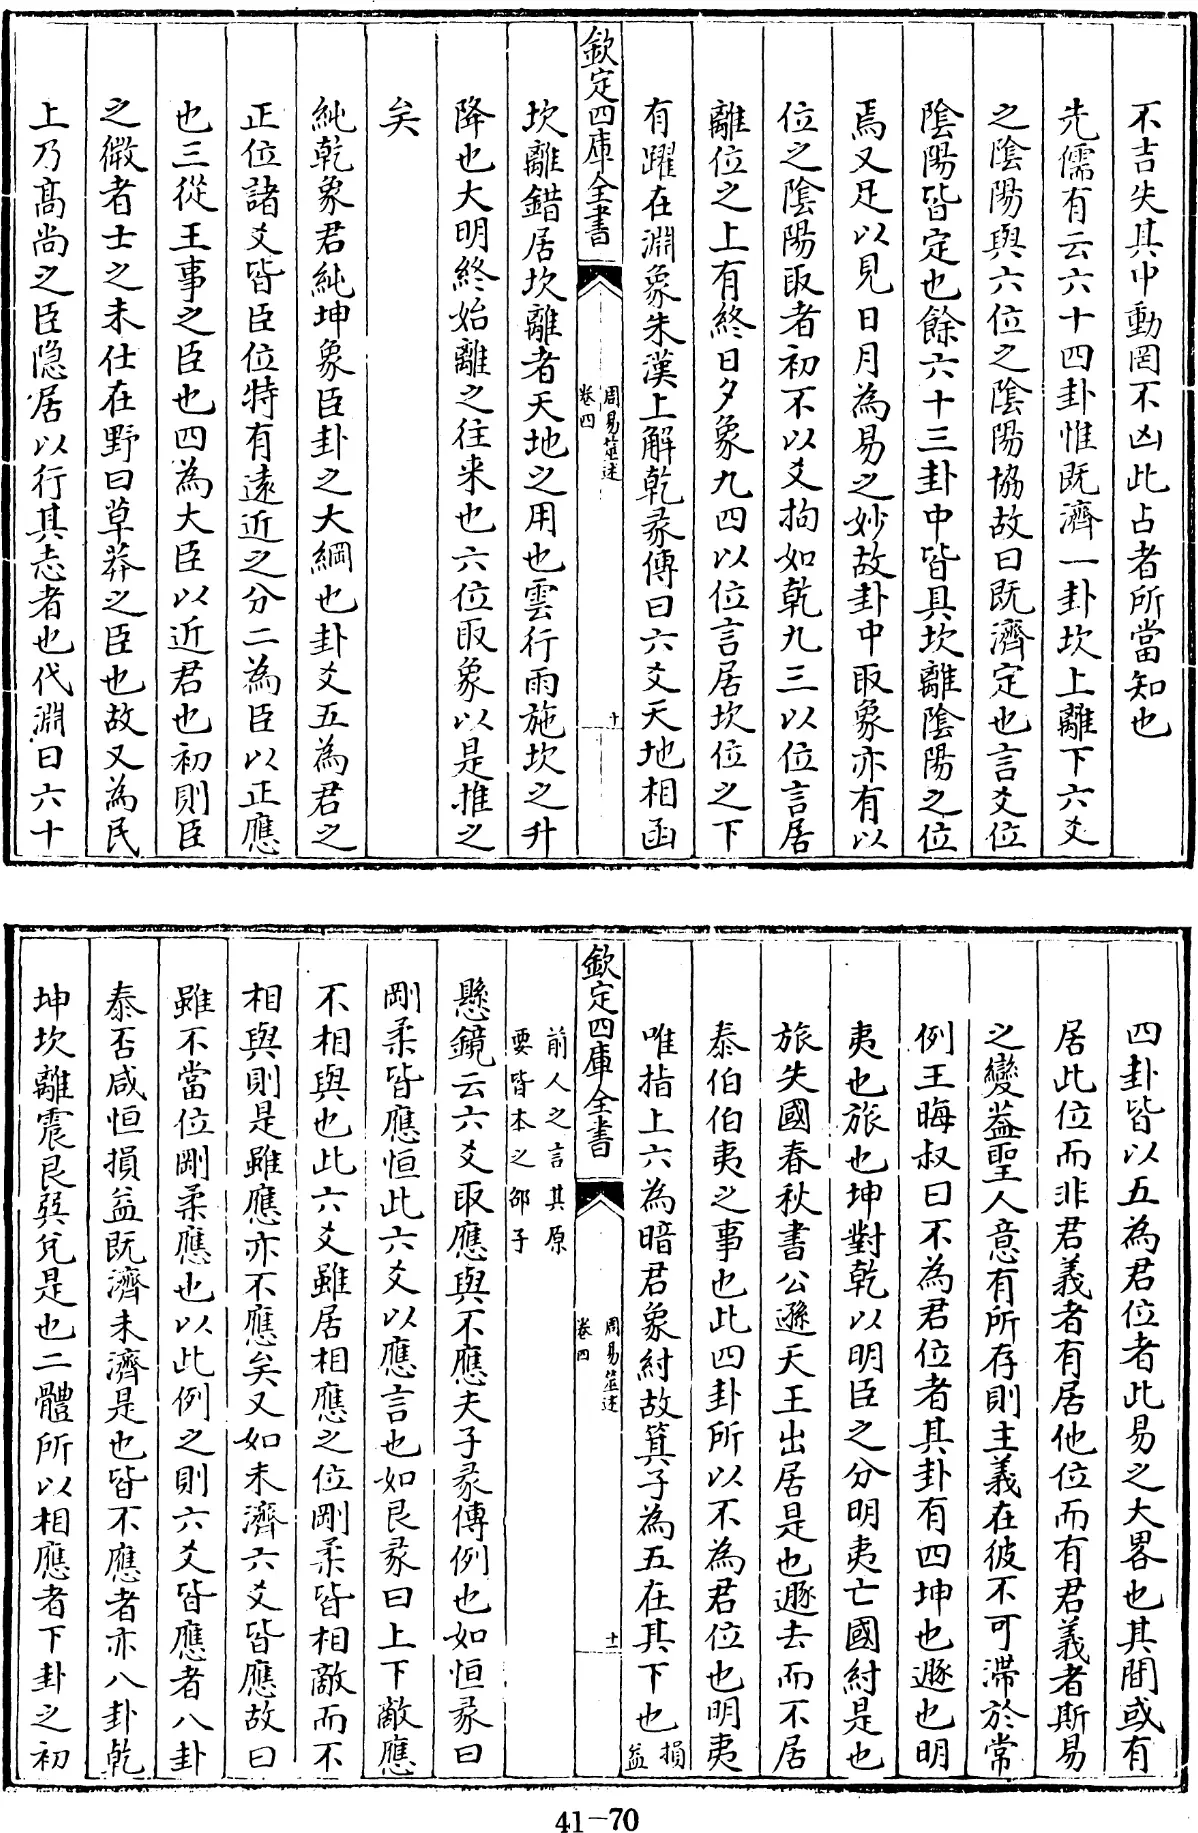 不吉失其中動罔不凶此占者所當知也
先儒有云六十四卦惟既濟一卦坎上離下六爻
之陰陽與六位之陰陽協故曰既濟定也言爻位
陰陽皆定也餘六十三卦中皆具坎離陰陽之位
焉又足以見日月為易之妙故卦中取象亦有以
位之陰陽取者初不以爻拘如乾九三以位言居
離位之上有終日夕象九四以位言居坎位之下
有躍在淵象朱漢上解乾彖傳曰六爻天地相函
欽定四庫全書
周易筮述
卷四
十
坎離錯居坎離者天地之用也雲行雨施坎之升
降也大明終始離之往来也六位取象以是推之
矣
純乾象君純坤象臣卦之大綱也卦爻五為君之
正位諸爻皆臣位特有遠近之分二為臣以正應
也三從王事之臣也四為大臣以近君也初則臣
之微者士之未仕在野曰草莽之臣也故又為民
上乃髙尚之臣隐居以行其志者也代淵曰六十
四卦皆以五為君位者此易之大畧也其間或有
居此位而非君義者有居他位而有君義者斯易
之變葢聖人意有所存則主義在彼不可滯於常
例王晦叔曰不為君位者其卦有四坤也遯也明
夷也旅也坤對乾以明臣之分明夷亡國紂是也
旅失國春秋書公遜天王出居是也遯去而不居
泰伯伯夷之事也此四卦所以不為君位也明夷
唯指上六為暗君象紂故箕子為五在其下也損
益
欽定四庫全書
周易筮述
卷四
十一
前人之言其原
要皆本之邵子
懸鏡云六爻取應與不應夫子彖傳例也如恒彖曰
剛柔皆應恒此六爻以應言也如艮彖曰上下敵應
不相與也此六爻雖居相應之位剛柔皆相敵而不
相與則是雖應亦不應矣又如未濟六爻皆應故曰
雖不當位剛柔應也以此例之則六爻皆應者八卦
泰否咸恒損益既濟未濟是也皆不應者亦八卦乾
坤坎離震艮巽兌是也二體所以相應者下卦之初
41-70